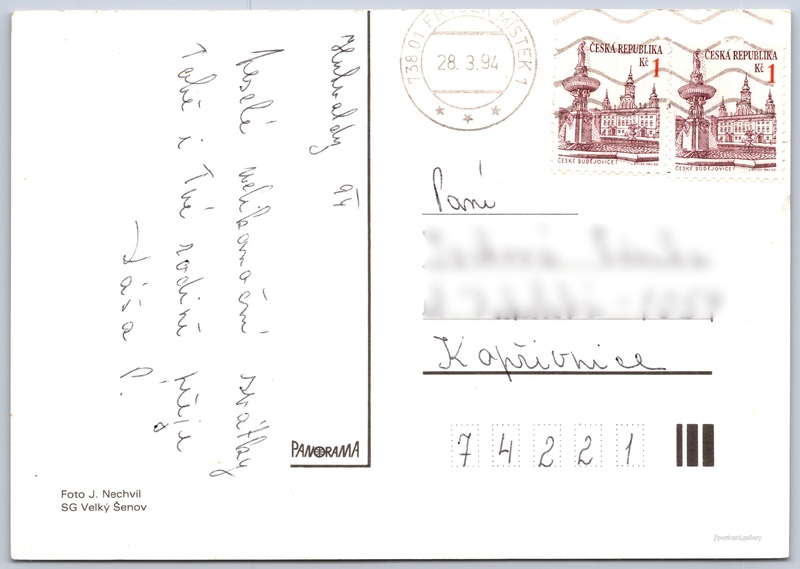 Hukvaldy 94
Veselé velikonoční svátky
Tobě i Tvé rodině přeje
Táša P.
PANORAMA
Foto J. Nechvíl
SG Velký Šenov
138 01 FRÝDEK-MÍSTEK 1
28. 3. 94
ČESKÁ REPUBLIKA
Kč 1
ČESKÉ BUDĚJOVICE
ČESKÁ REPUBLIKA
Kč 1
ČESKÉ BUDĚJOVICE
Paní
Kopřivnice
7 4 2 2 1